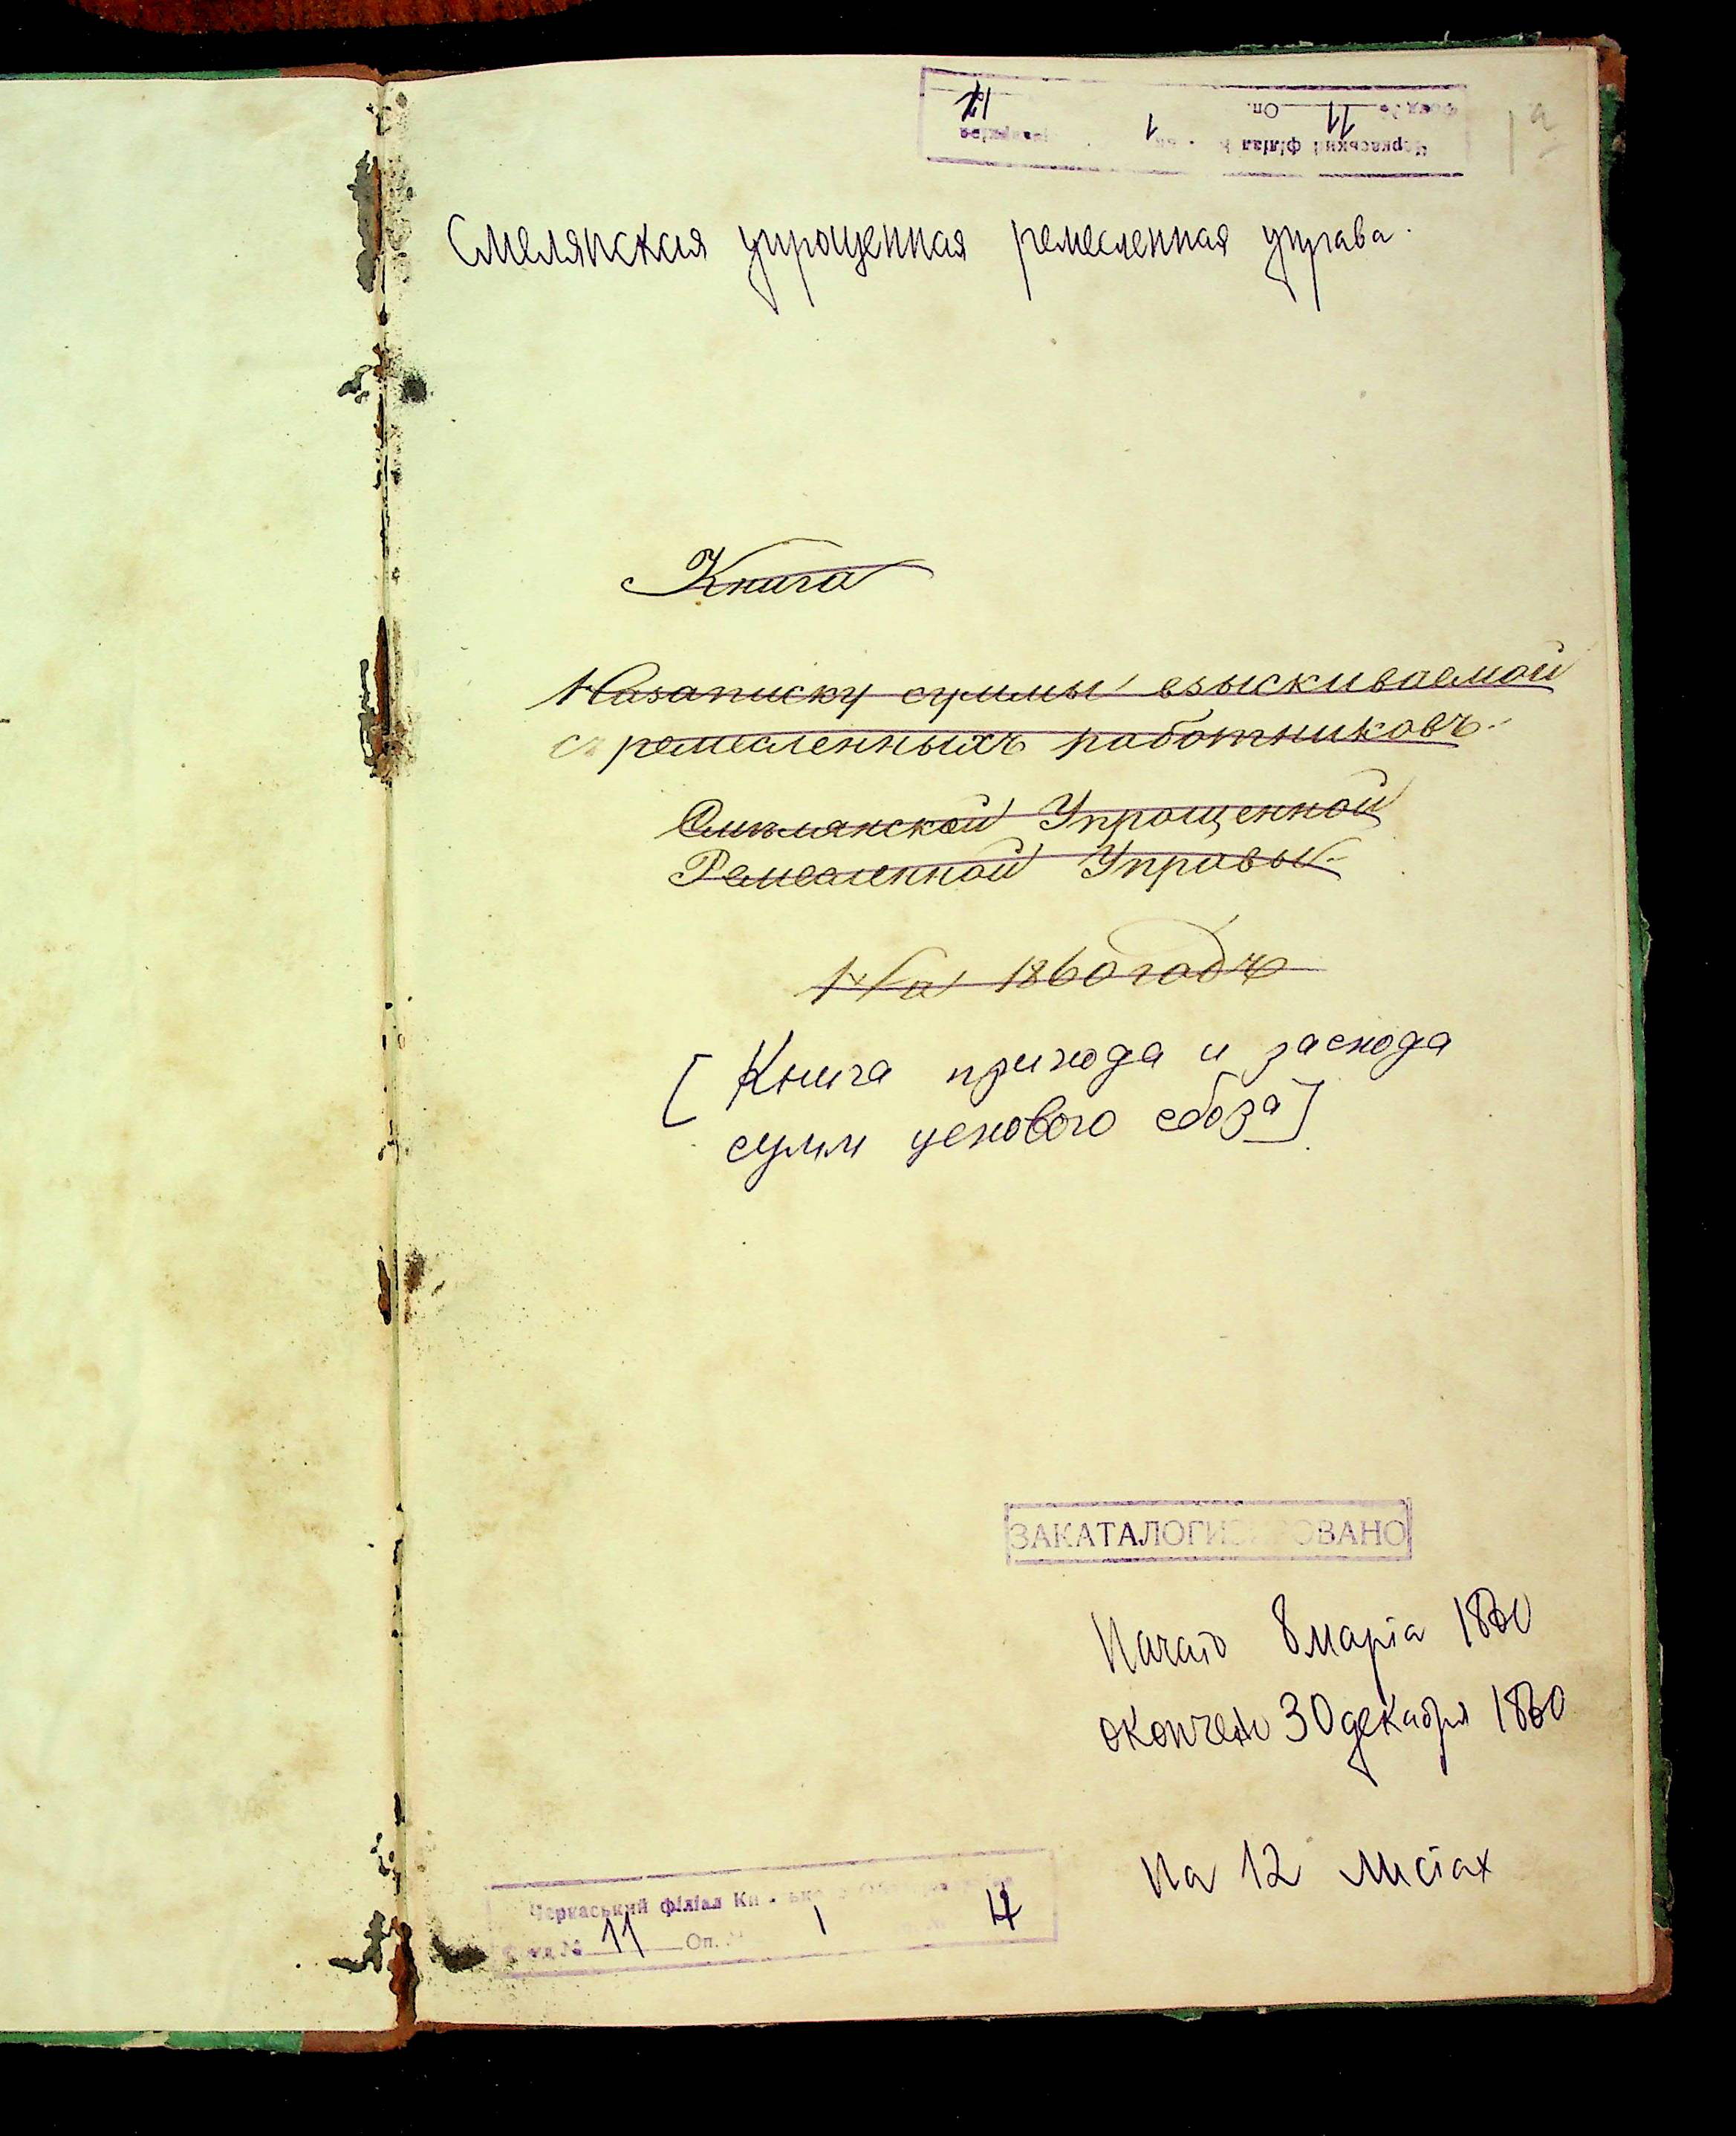 Черкаський філіал
Фонд № 11 Оп. 1
1а
Смелянская упрощенная ремесленная управа.
Книга
На записку суммы взыскиваемой
с ремесленныхъ работниковъ
Смѣлянской Упрощенной
Ремесленной Управы
На 1860 годъ
[Книга прихода и расхода
сумм цехового сбора]
ЗАКАТАЛОГИЗИРОВАНО
Начато 8 марта 1860
окончено 30 декабря 1860
На 12 листах
Черкаський філіал
Фонд № 11 Оп. № 1 4